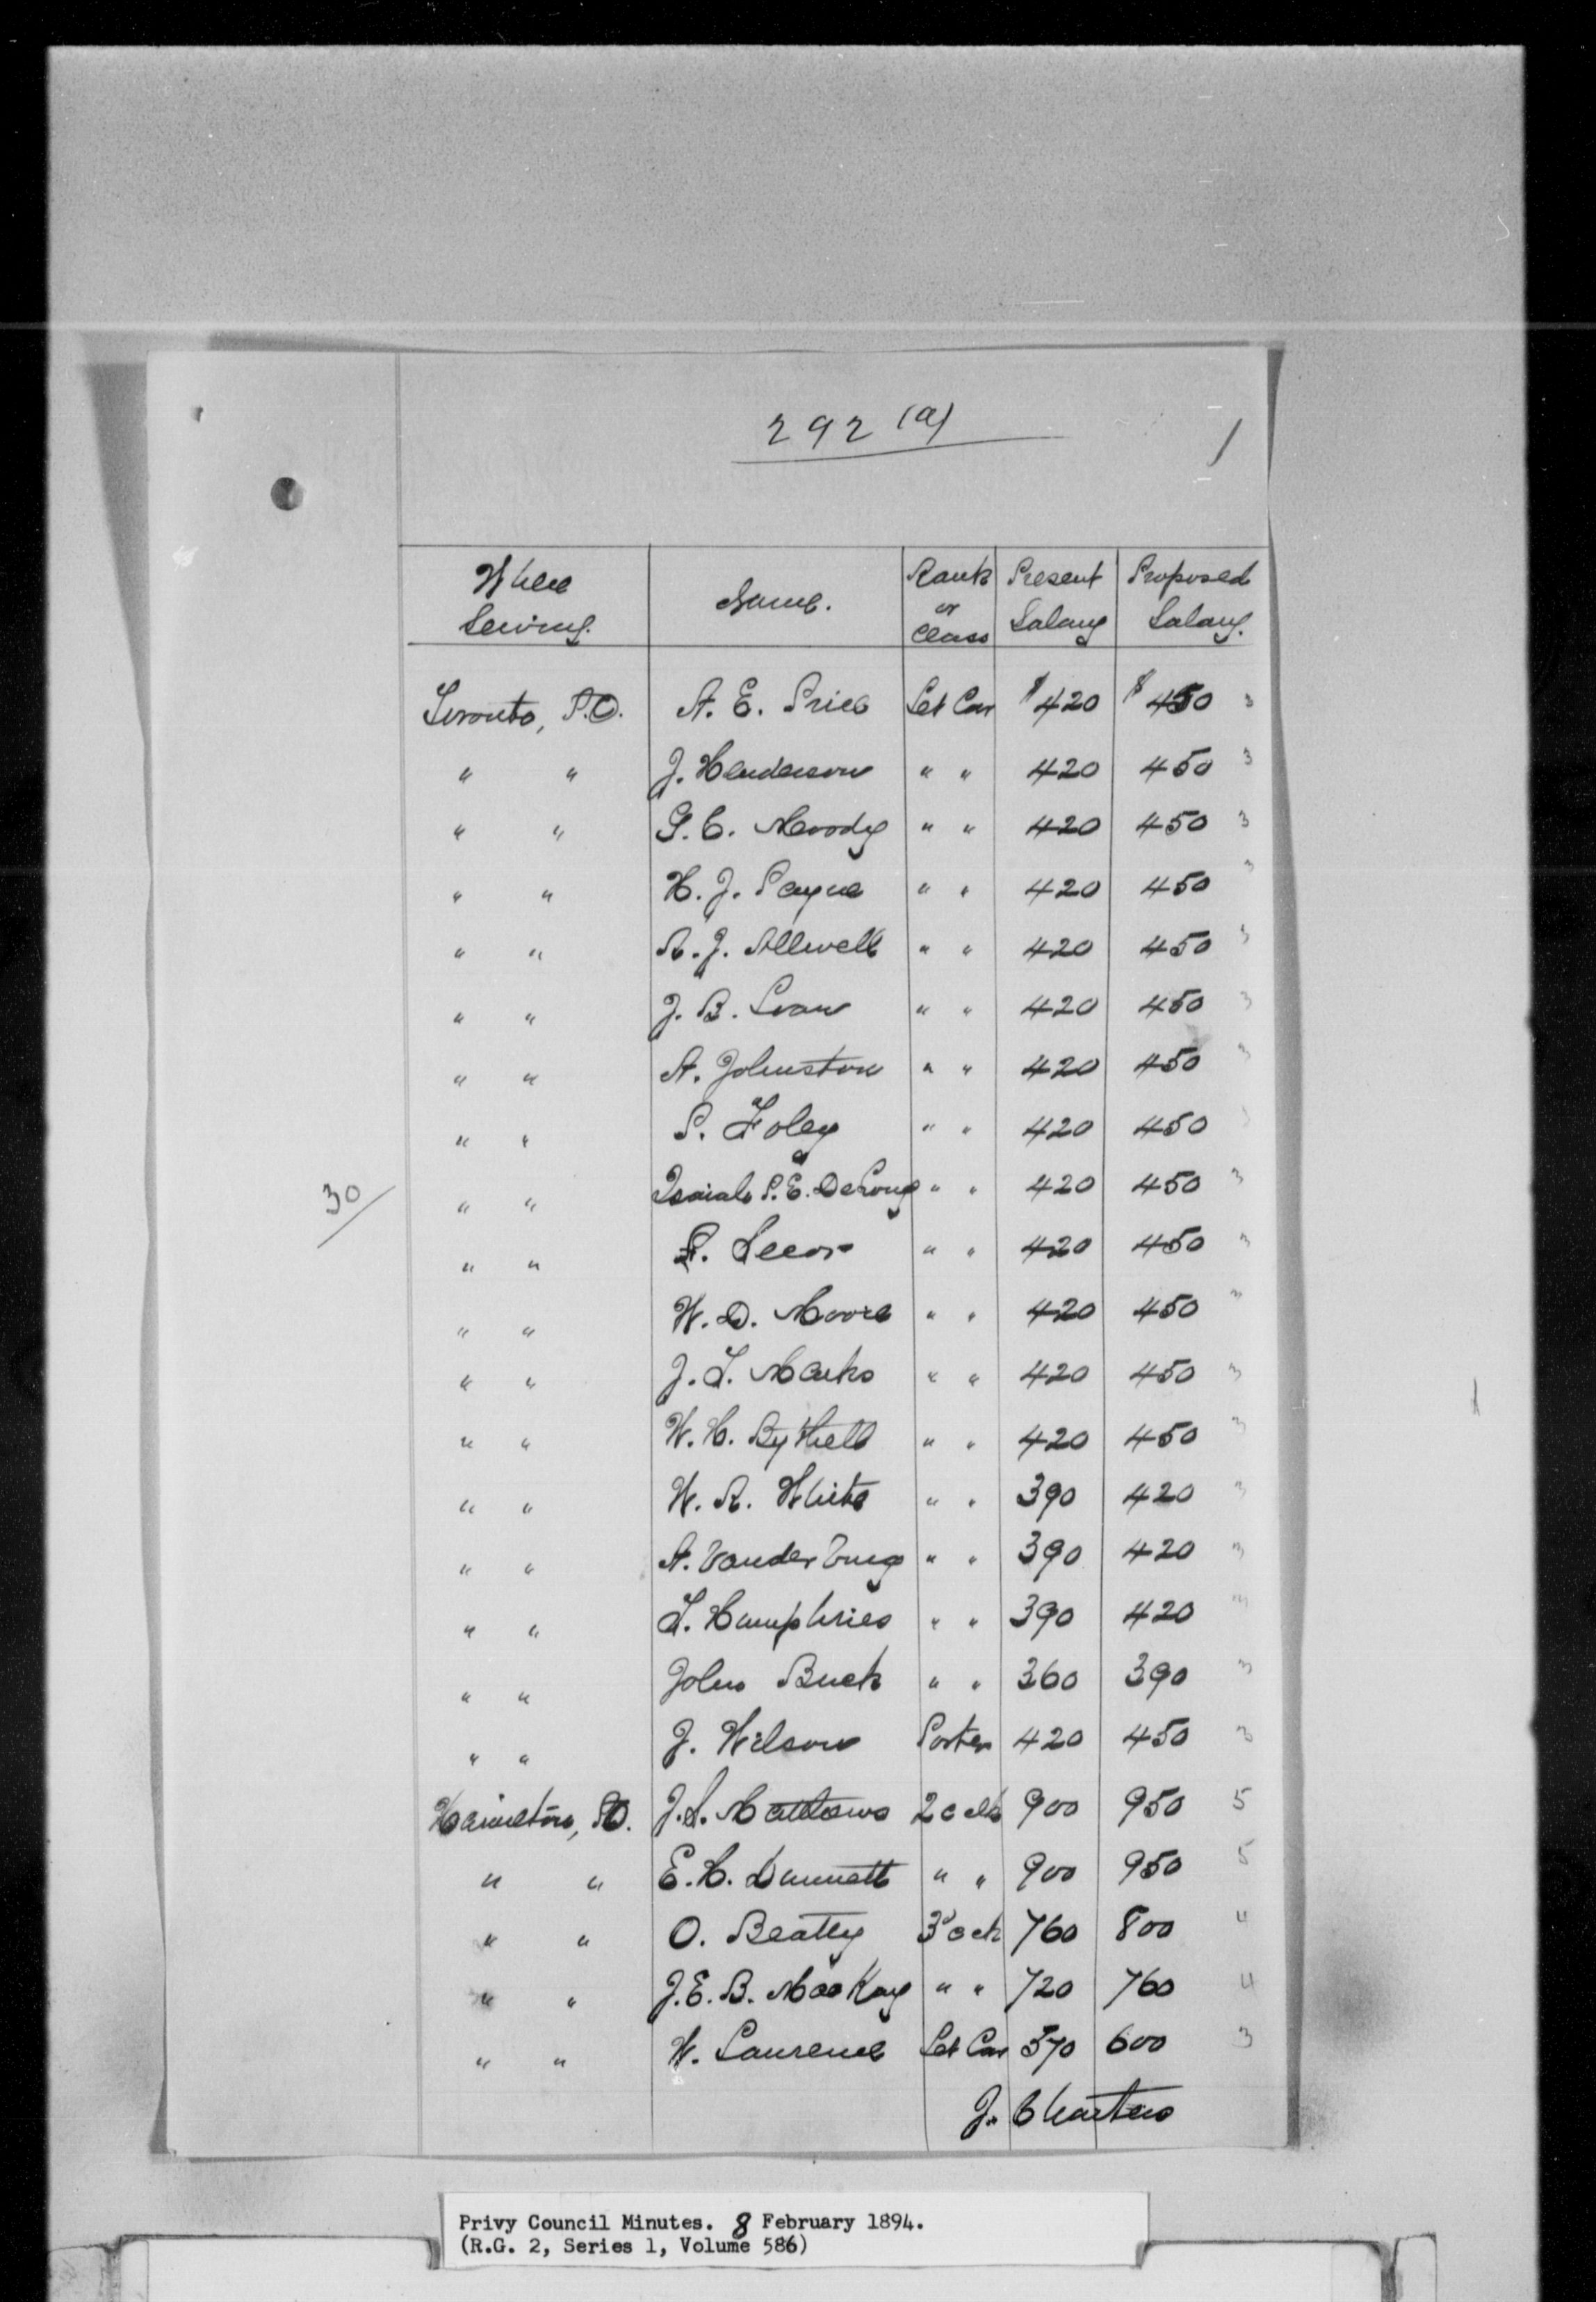 292 (a)
1
Where Serving. Name. Rank or Class Present Salary Proposed Salary.
Toronto, P.O. A. E. Price Let Car $420 $450 3
" " J. Henderson " " 420 450 3
" " G. C. Moody " " 420 450 3
" " H. J. Payne " " 420 450 3
" " R. J. Allwell " " 420 450 3
" " J. B. " " 420 450 3
" " A. Johnston " " 420 450 3
" " P. Foley " " 420 450
30 " " Isaiah P. E. DeLong " " 420 450 3
" " Secor " " 420 450 3
" " W. D. Moore " " 420 450 3
" " J. T. Marks " " 420 450 3
" " W. H. Bythell " " 420 450 3
" " W. R. White " " 390 420 3
" " A. Vandervoug " " 390 420 3
" " T. Humphries " " 390 420 3
" " John Buck " " 360 390 3
" " J. Wilson Porter 420 450 3
Hamilton, P.O. J. S. Matthews 2 c clk 900 950 5
" " E. H. Dunnett " " 900 950 5
" " O. Beatty 3 c clk 760 800 4
" " J. E. B. MacKay " " 720 760 4
" " W. Laurence Let Car 570 600 3
J. Charters
Privy Council Minutes. 8 February 1894.
(R.G. 2, Series 1, Volume 586)